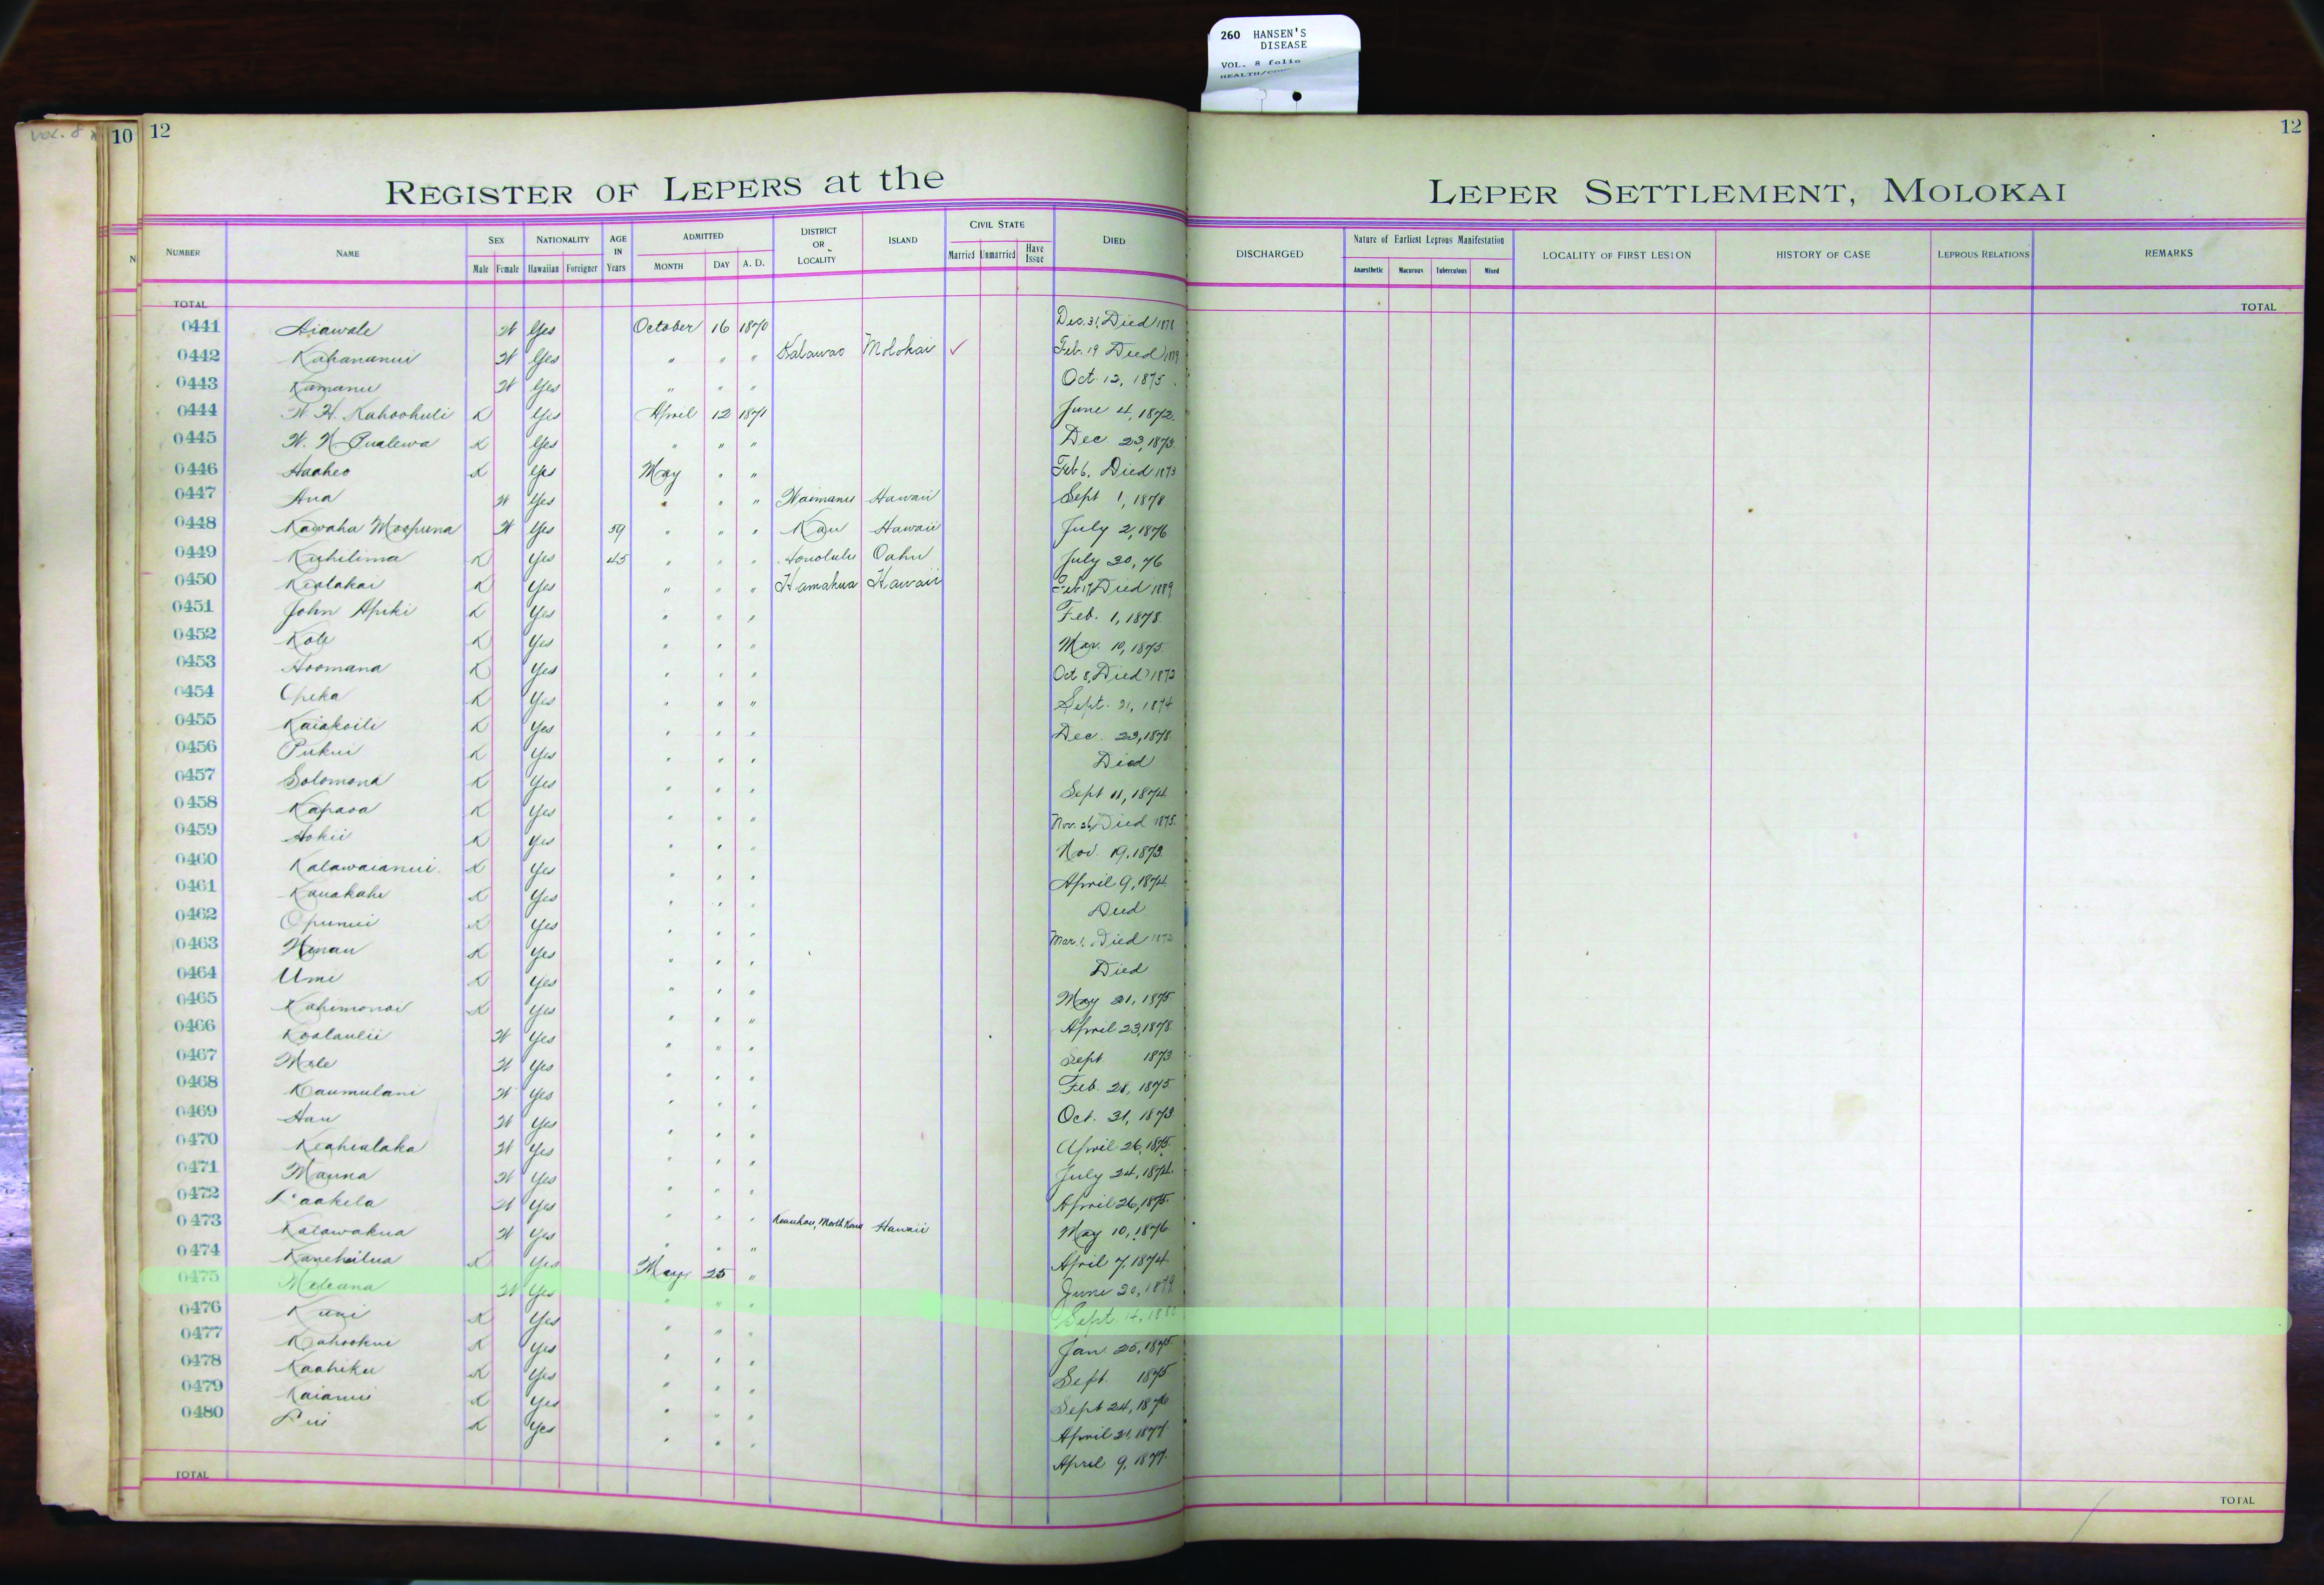 260 HANSEN'S
DISEASE
VOL. 8 folio
VOL. 8
10
12
12
REGISTER OF LEPERS at the LEPER SETTLEMENT, MOLOKAI
NUMBER NAME SEX Male Female NATIONALITY Hawaiian Foreigner AGE IN Years ADMITTED MONTH DAY A. D. DISTRICT OR LOCALITY ISLAND CIVIL STATE Married Unmarried Have Issue DIED DISCHARGED Nature of Earliest Leprous Manifestation Anaesthetic Macurous Tuberculous Mixed LOCALITY OF FIRST LESION HISTORY OF CASE LEPROUS RELATIONS REMARKS
TOTAL TOTAL
0441 Aiawale W Yes October 16 1870 Dec. 31, Died 1878
0442 Kahananui W Yes " " " Kalawao Molokai ✓ Feb. 19 Died
0443 Kamanu W Yes " " " Oct. 12, 1875
0444 W. H. Kahoohuli K Yes April 12 1871 June 4, 1872
0445 W. N. Pualewa K Yes " " " Dec 23, 1873
0446 Haaheo K Yes May " " Feb 6, Died 1873
0447 Ana W Yes " " " Waimanu Hawaii Sept 1, 1878
0448 Kawaha Moopuna W Yes 59 " " " Kau Hawaii July 2, 1876
0449 Kuhilima K Yes 45 " " " Honolulu Oahu July 30, 76
0450 Kealakai K Yes " " " Hamakua Hawaii Feb 17, Died 1889
0451 John Apiki K Yes " " " Feb. 1, 1878
0452 Kole K Yes " " " Mar. 10, 1875
0453 Hoomana K Yes " " " Oct 8, Died 1873
0454 Opeka K Yes " " " Sept. 21, 1874
0455 Kaiakoili K Yes " " " Dec. 23, 1878
0456 Pukui K Yes " " " Died
0457 Solomona K Yes " " " Sept 11, 1874
0458 Kapaoa K Yes " " " Nov. 26, Died 1875
0459 Hokii K Yes " " " Nov. 19, 1873
0460 Kalawaianui K Yes " " " April 9, 1874
0461 Kauakahi K Yes " " " Died
0462 Opunui K Yes " " " Mar. 1, Died
0463 Hinau K Yes " " " Died
0464 Umi K Yes " " " May 21, 1875
0465 Kahimonoi K Yes " " " April 23, 1878
0466 Koolaulii W Yes " " " Sept 1873
0467 Mele W Yes " " " Feb. 28, 1875
0468 Kaumulani W Yes " " " Oct. 31, 1873
0469 Hau W Yes " " " April 26, 1875
0470 Keahialaka W Yes " " " July 24, 1874
0471 Mauna W Yes " " " April 26, 1875
0472 Laakela W Yes " " " Keauhou, North Kona Hawaii May 10, 1876
0473 Kalawakua W Yes " " " April 7, 1874
0474 Kanehailua K Yes May 25 " June 20, 1879
0475 Meleana W Yes " " " Sept. 14,
0476 Kuni K Yes " " " Jan 25, 1875
0477 Kahookui K Yes " " " Sept. 1875
0478 Kaahiku K Yes " " " Sept 24, 1876
0479 Kaianui K Yes " " " April 21, 1877
0480 Lui K Yes " " " April 9, 1877
TOTAL TOTAL